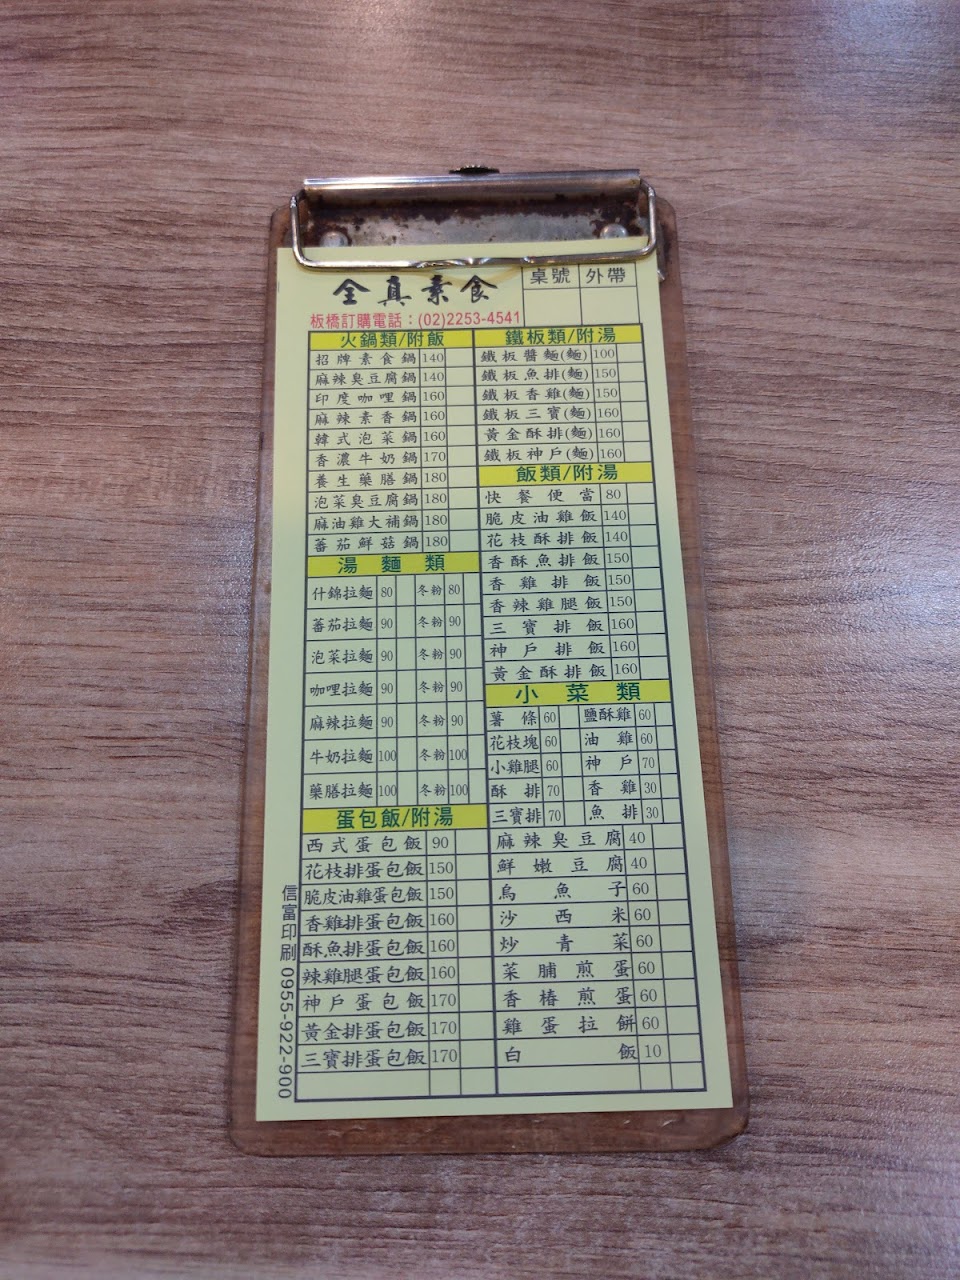 全真素食
桌號 外帶
板橋訂購電話：(02)2253-4541
火鍋類/附飯
招牌素食鍋 140
麻辣臭豆腐鍋 140
印度咖哩鍋 160
麻辣素香鍋 160
韓式泡菜鍋 160
香濃牛奶鍋 170
養生藥膳鍋 180
泡菜臭豆腐鍋 180
麻油雞大補鍋 180
蕃茄鮮菇鍋 180
湯麵類
什錦拉麵 80 冬粉 80
蕃茄拉麵 90 冬粉 90
泡菜拉麵 90 冬粉 90
咖哩拉麵 90 冬粉 90
麻辣拉麵 90 冬粉 90
牛奶拉麵 100 冬粉 100
藥膳拉麵 100 冬粉 100
蛋包飯/附湯
西式蛋包飯 90
花枝排蛋包飯 150
脆皮油雞蛋包飯 150
香雞排蛋包飯 160
酥魚排蛋包飯 160
辣雞腿蛋包飯 160
神戶蛋包飯 170
黃金排蛋包飯 170
三寶排蛋包飯 170
鐵板類/附湯
鐵板醬麵(麵) 100
鐵板魚排(麵) 150
鐵板香雞(麵) 150
鐵板三寶(麵) 160
黃金酥排(麵) 160
鐵板神戶(麵) 160
飯類/附湯
快餐便當 80
脆皮油雞飯 140
花枝酥排飯 140
香酥魚排飯 150
香雞排飯 150
香辣雞腿飯 150
三寶排飯 160
神戶排飯 160
黃金酥排飯 160
小菜類
薯條 60 鹽酥雞 60
花枝塊 60 油雞 60
小雞腿 60 神戶 70
酥排 70 香雞 30
三寶排 70 魚排 30
麻辣臭豆腐 40
鮮嫩豆腐 40
烏魚子 60
沙西米 60
炒青菜 60
菜脯煎蛋 60
香椿煎蛋 60
雞蛋拉餅 60
白飯 10
信富印刷 0955-922-900